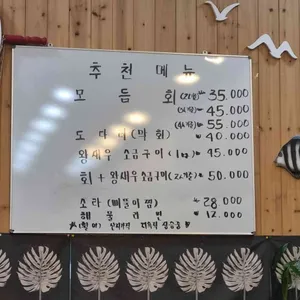 추천 메뉴
모듬 회 (2인) 35.000
(3인) 45.000
(4인) 55.000
도다리 (막회) 40.000
왕새우 소금구이 (1kg) 45.000
회 + 왕새우소금구이 (2인) 50.000
소라 (삐뚤이찜) 28 000
해물라면 12.000